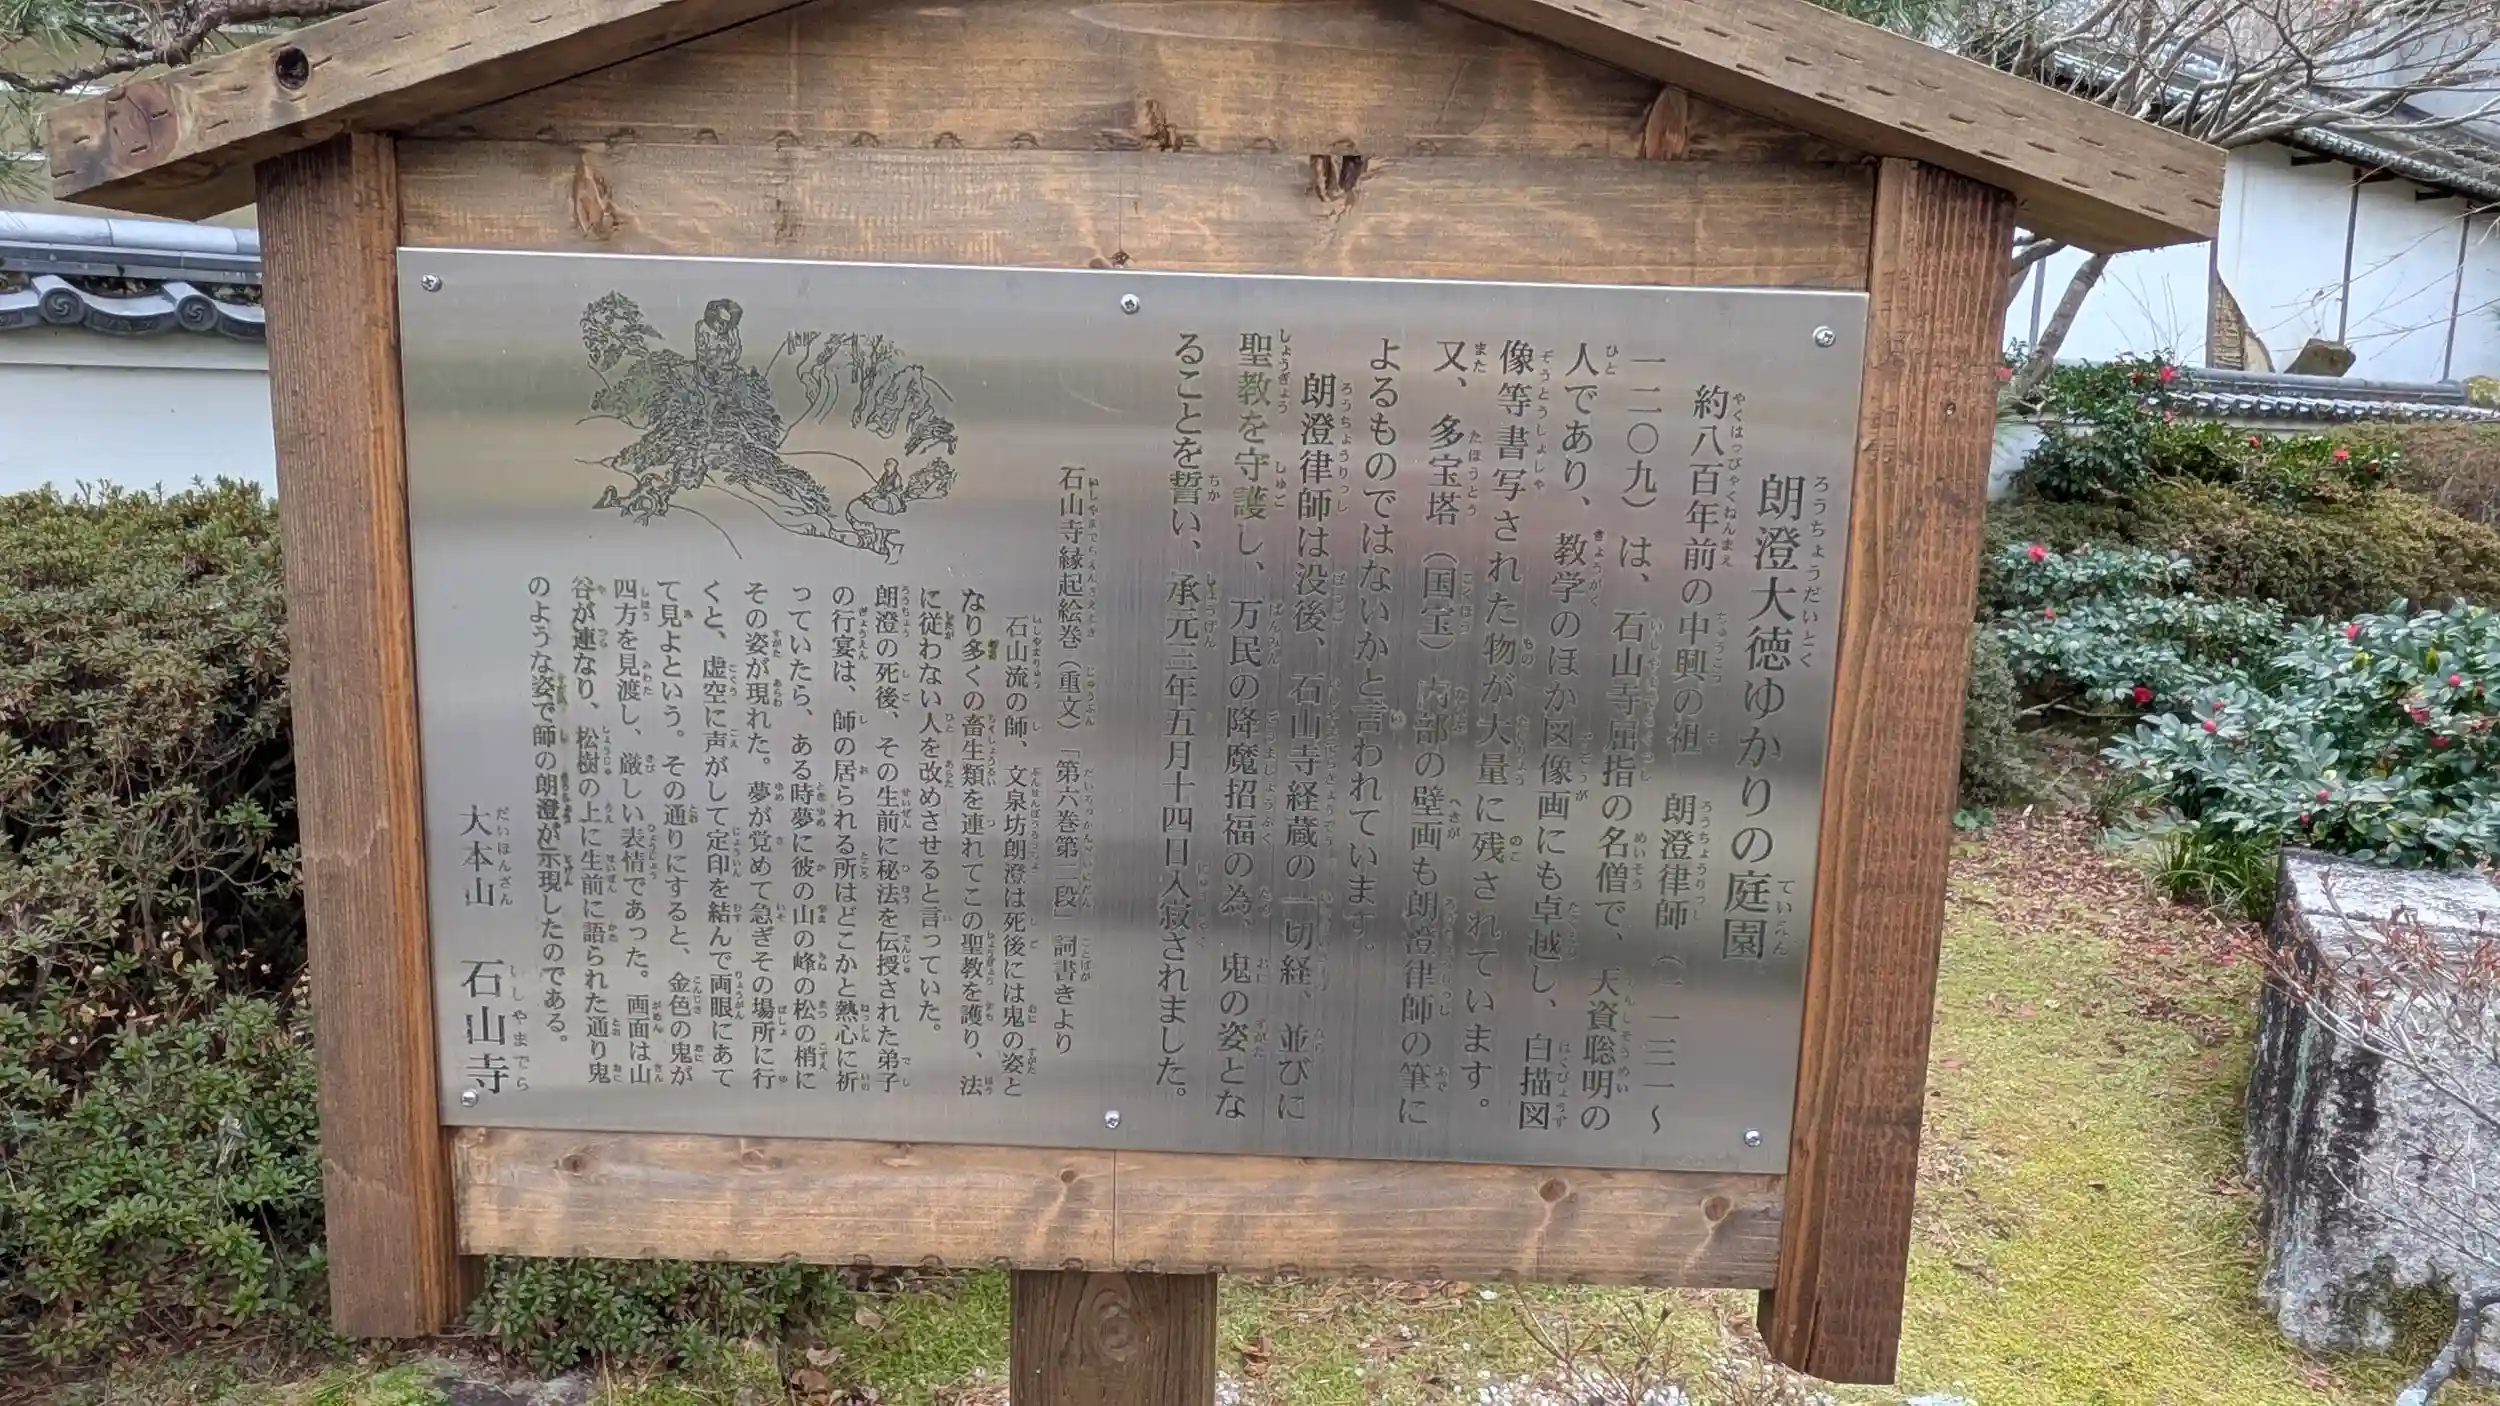 朗澄大徳ゆかりの庭園
約八百年前の中興の祖　朗澄律師（一一三一～
一二〇九）は、石山寺屈指の名僧で、天資聡明の
人であり、教学のほか図像画にも卓越し、白描図
像等書写された物が大量に残されています。
又、多宝塔（国宝）内部の壁画も朗澄律師の筆に
よるものではないかと言われています。
朗澄律師は没後、石山寺経蔵の一切経、並びに
聖教を守護し、万民の降魔招福の為、鬼の姿とな
ることを誓い、承元三年五月十四日入寂されました。
石山寺縁起絵巻（重文）「第六巻第二段」詞書きより
石山流の師、文泉坊朗澄は死後には鬼の姿と
なり多くの畜生類を連れてこの聖教を護り、法
に従わない人を改めさせると言っていた。
朗澄の死後、その生前に秘法を伝授された弟子
の行宴は、師の居られる所はどこかと熱心に祈
っていたら、ある時夢に彼の山の峰の松の梢に
その姿が現れた。夢が覚めて急ぎその場所に行
くと、虚空に声がして定印を結んで両眼にあて
て見よという。その通りにすると、金色の鬼が
四方を見渡し、厳しい表情であった。画面は山
谷が連なり、松樹の上に生前に語られた通り鬼
のような姿で師の朗澄が示現したのである。
大本山　石山寺